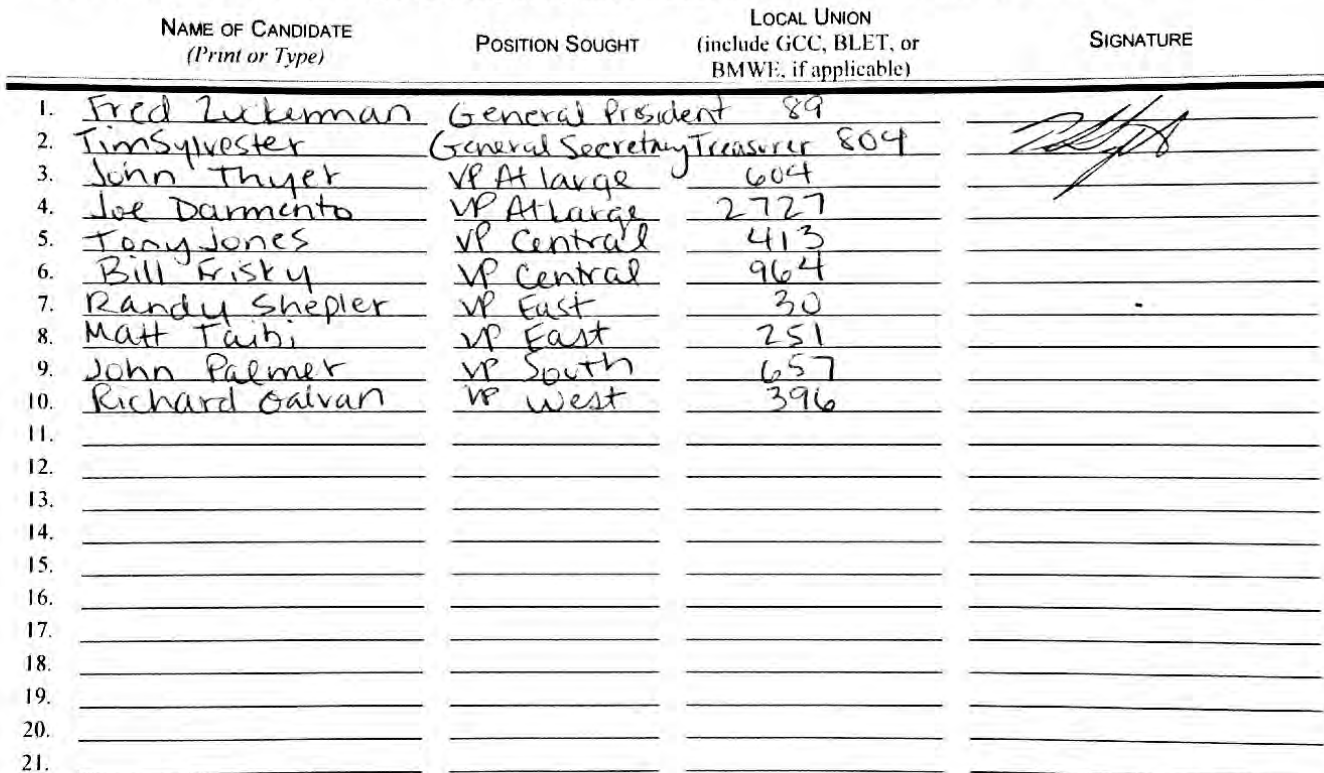 NAME OF CANDIDATE POSITION SOUGHT LOCAL UNION SIGNATURE
(Print or Type) (include GCC, BLET, or
BMWE, if applicable)
1. Fred Zuckerman General President 89
2. Tim Sylvester General Secretary Treasurer 804
3. John Thyer VP At large 604
4. Joe Darmento VP At Large 2727
5. Tony Jones VP Central 413
6. Bill Frisky VP Central 964
7. Randy Shepler VP East 30
8. Matt Taibi VP East 251
9. John Palmer VP South 657
10. Richard Galvan VP West 396
11.
12.
13.
14.
15.
16.
17.
18.
19.
20.
21.